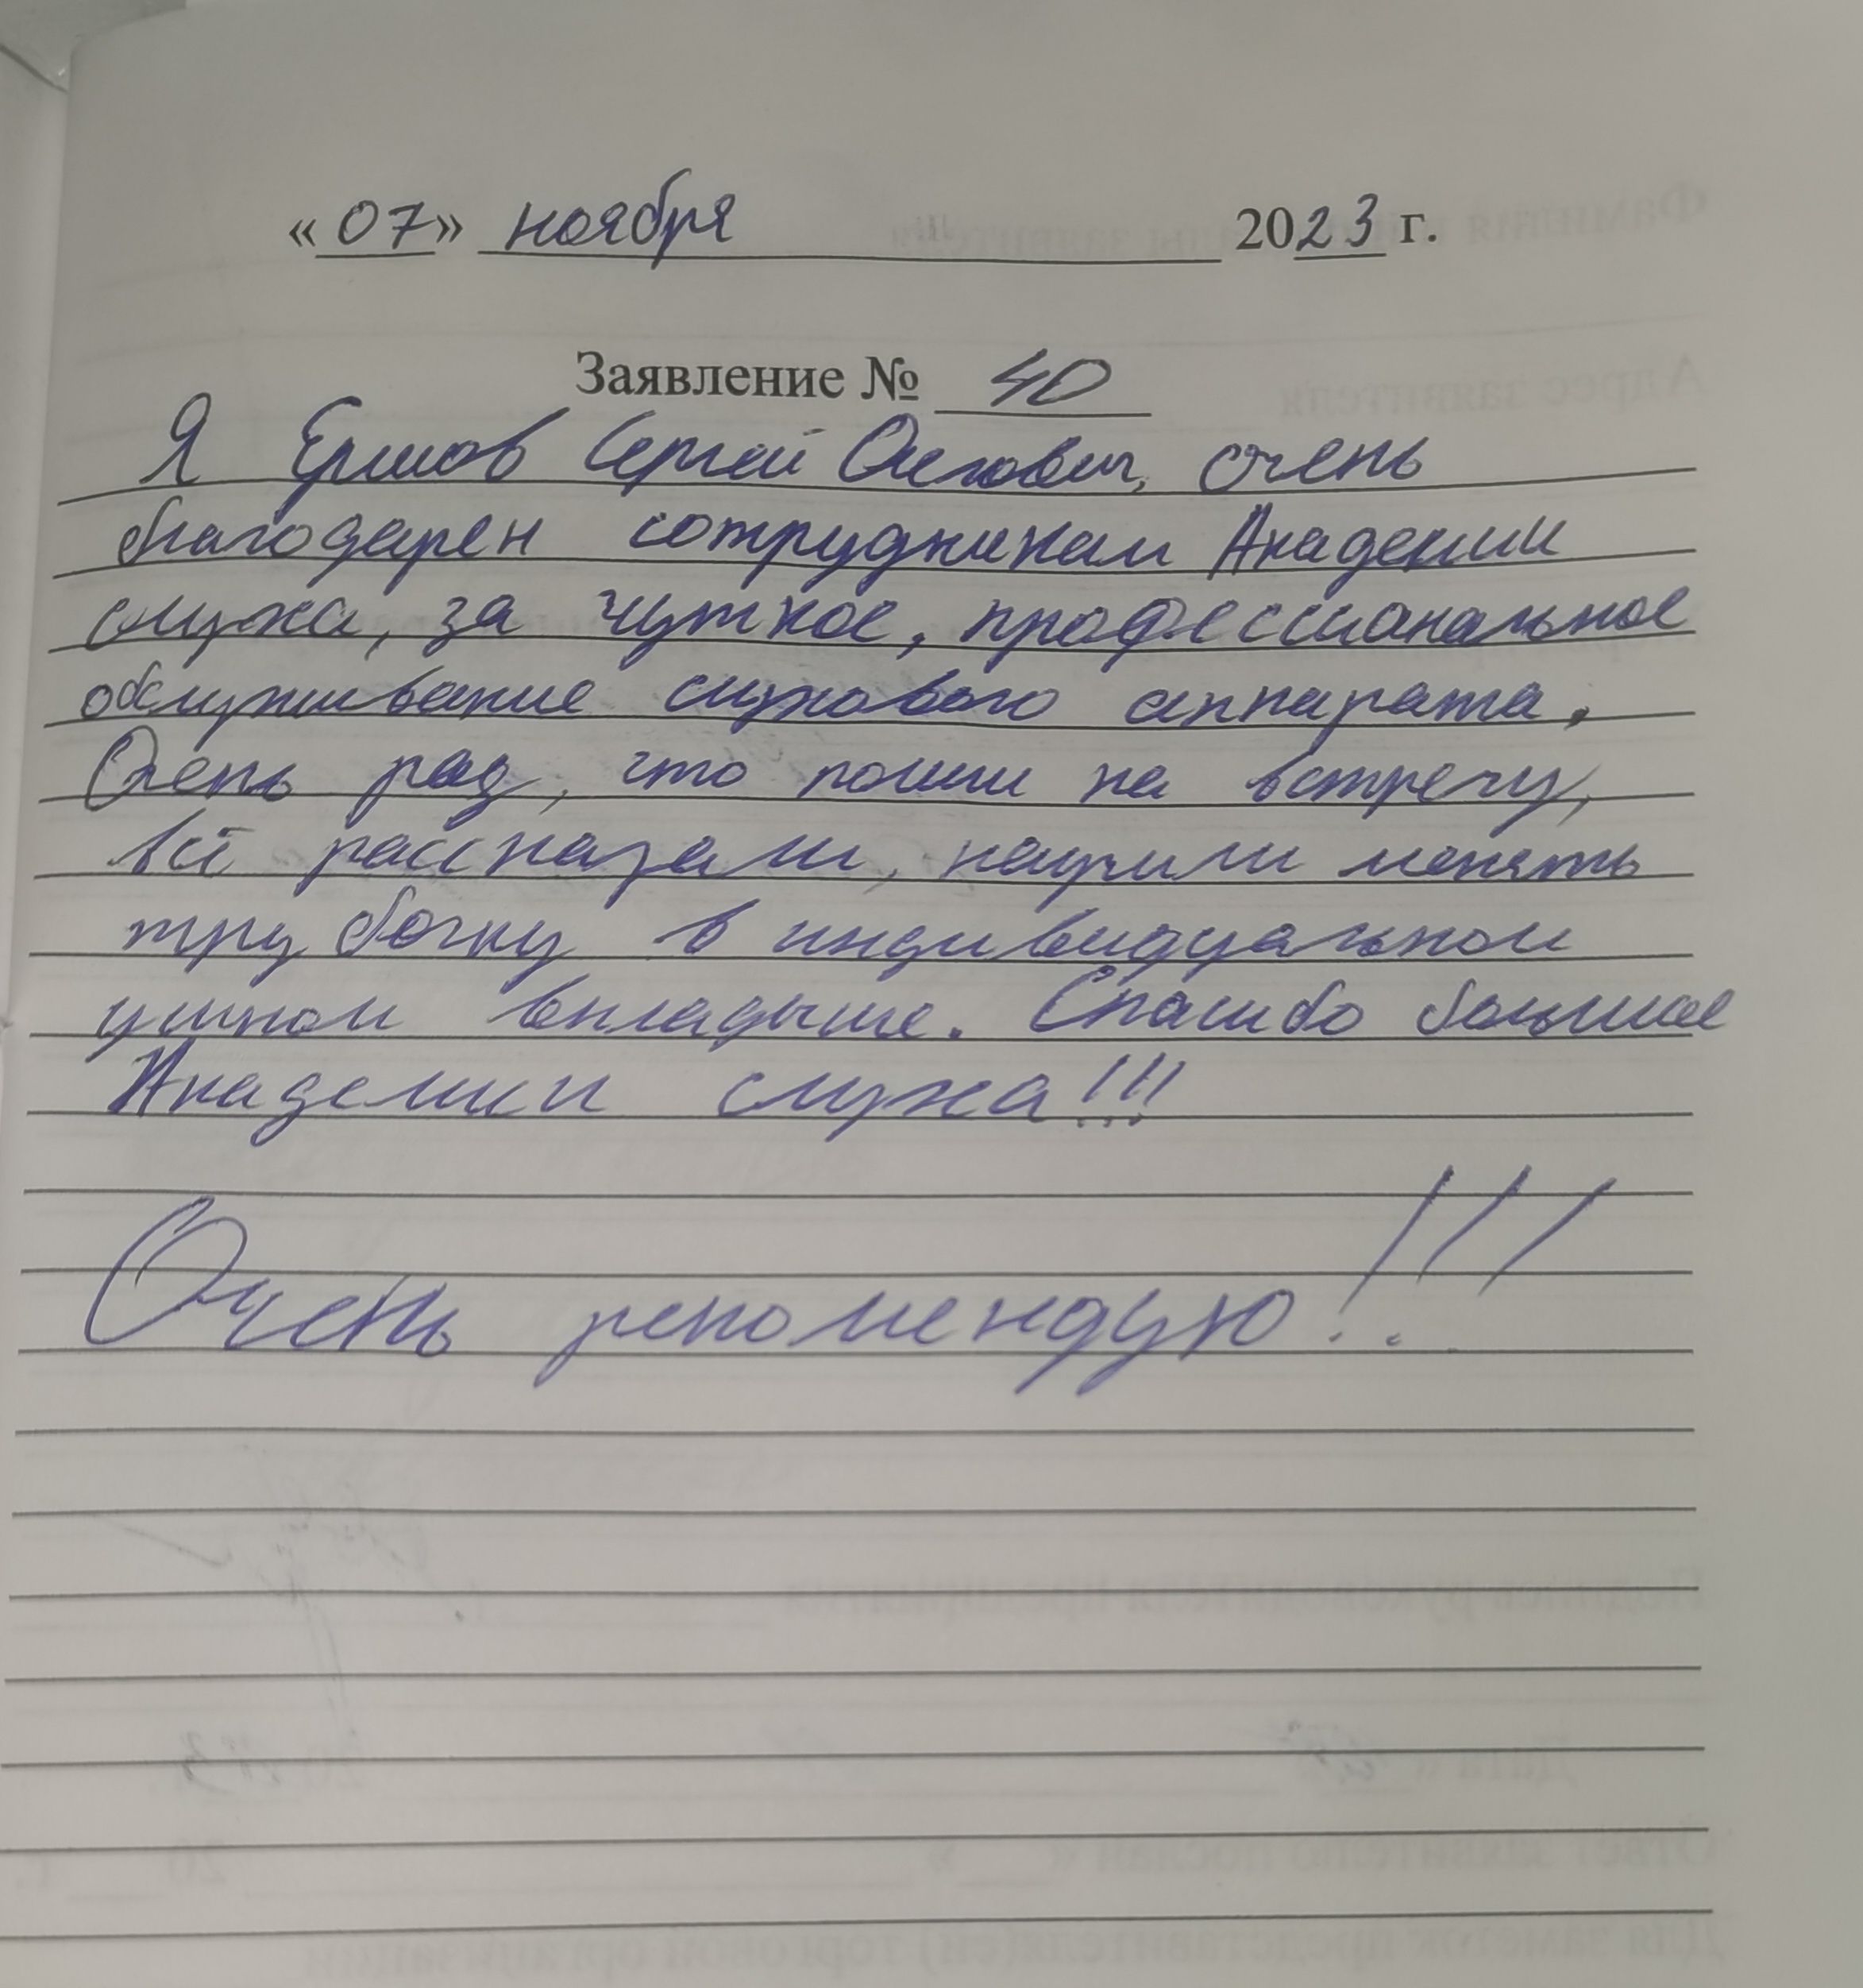 «07» ноября 2023 г.
Заявление № 40
Я Ершов Сергей Олегович, очень
благодарен сотрудникам Академии
слуха, за чуткое, профессиональное
обслуживание слухового аппарата.
Очень рад, что пошли на встречу,
всё рассказали, научили менять
трубочку в индивидуальном
ушном вкладыше. Спасибо большое
Академии слуха!!!
Очень рекомендую!!!